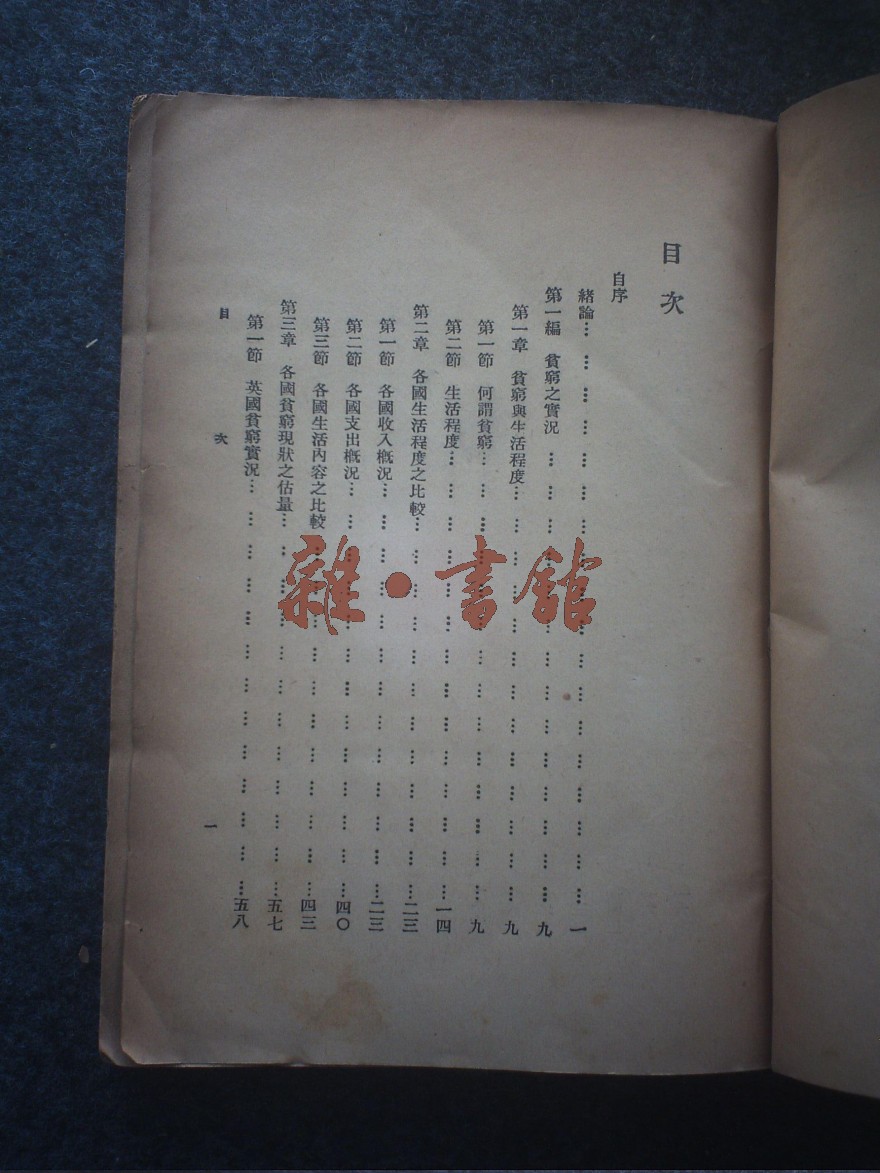 目次
自序
緒論… … … … … … … … … … … … … … … … … …一
第一編 貧窮之實況 … … … … … … … … … … … … … …九
第一章 貧窮與生活程度… … … … … … … … … … … … …九
第一節 何謂貧窮… … … … … … … … … … … … … …九
第二節 生活程度… … … … … … … … … … … … … …一四
第二章 各國生活程度之比較… … … … … … … … … … … …二三
第一節 各國收入概況… … … … … … … … … … … … …二三
第二節 各國支出概況… … … … … … … … … … … … …四〇
第三節 各國生活內容之比較… … … … … … … … … … … …四三
第三章 各國貧窮現狀之估量… … … … … … … … … … … …五七
第一節 英國貧窮實況… … … … … … … … … … … … …五八
目次 一
雜·書館